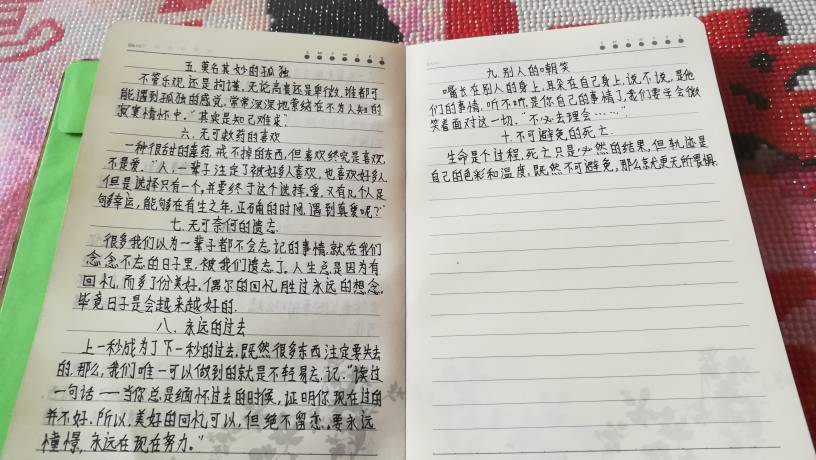 五.莫名其妙的孤独
不管乐观还是拘谨,无论高贵还是卑微,谁都可
能遇到孤独的感觉,常常深深地萦绕在不为人知的
寂寞情怀中。"其实是知己难求"
六.无可救药的喜欢
一种很甜的毒药,戒不掉的东西,但喜欢终究是喜欢,
不是爱。"人一辈子注定了被好多人喜欢,也喜欢好多人
但是选择只有一个,并要终于这个选择.爱,又有几个人足
够幸运,能够在有生之年,正确的时间,遇到真爱呢?"
七.无可奈何的遗忘
很多我们以为一辈子都不会忘记的事情,就在我们
念念不忘的日子里,被我们遗忘了。人生总是因为有
回忆,而多了份美好,偶尔的回忆胜过永远的想念,
毕竟日子是会越来越好的.
八.永远的过去
上一秒成为了下一秒的过去,既然很多东西注定要失去
的,那么,我们唯一可以做到的就是不轻易忘记。"读过
一句话——当你总是缅怀过去的时候,证明你现在过的
并不好.所以,美好的回忆可以,但绝不留恋,要永远
憧憬,永远在现在努力。"
九.别人的嘲笑
嘴长在别人的身上,耳朵在自己身上,说不说,是他
们的事情,听不听,是你自己的事情了,我们要学会微
笑着面对这一切,"不必去理会……"
十.不可避免的死亡
生命是个过程,死亡只是必然的结果,但轨迹是
自己的色彩和温度,既然不可避免,那么就更无所畏惧.